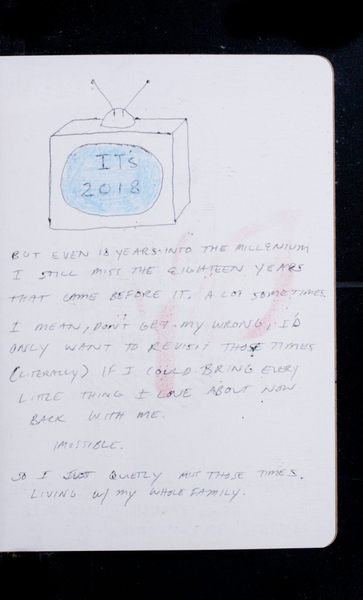 IT's
2018
BUT EVEN 18 YEARS INTO THE MILLENIUM
I STILL MISS THE EIGHTEEN YEARS
THAT CAME BEFORE IT. A LOT SOMETIMES.
I MEAN, DON'T GET MY WRONG, I'D
ONLY WANT TO REVISIT THOSE TIMES
(LITERALLY) IF I COULD BRING EVERY
LITTLE THING I LOVE ABOUT NOW
BACK WITH ME.
IMOSSIBLE.
SO I JUST QUIETLY MISS THOSE TIMES.
LIVING W/ MY WHOLE FAMILY.